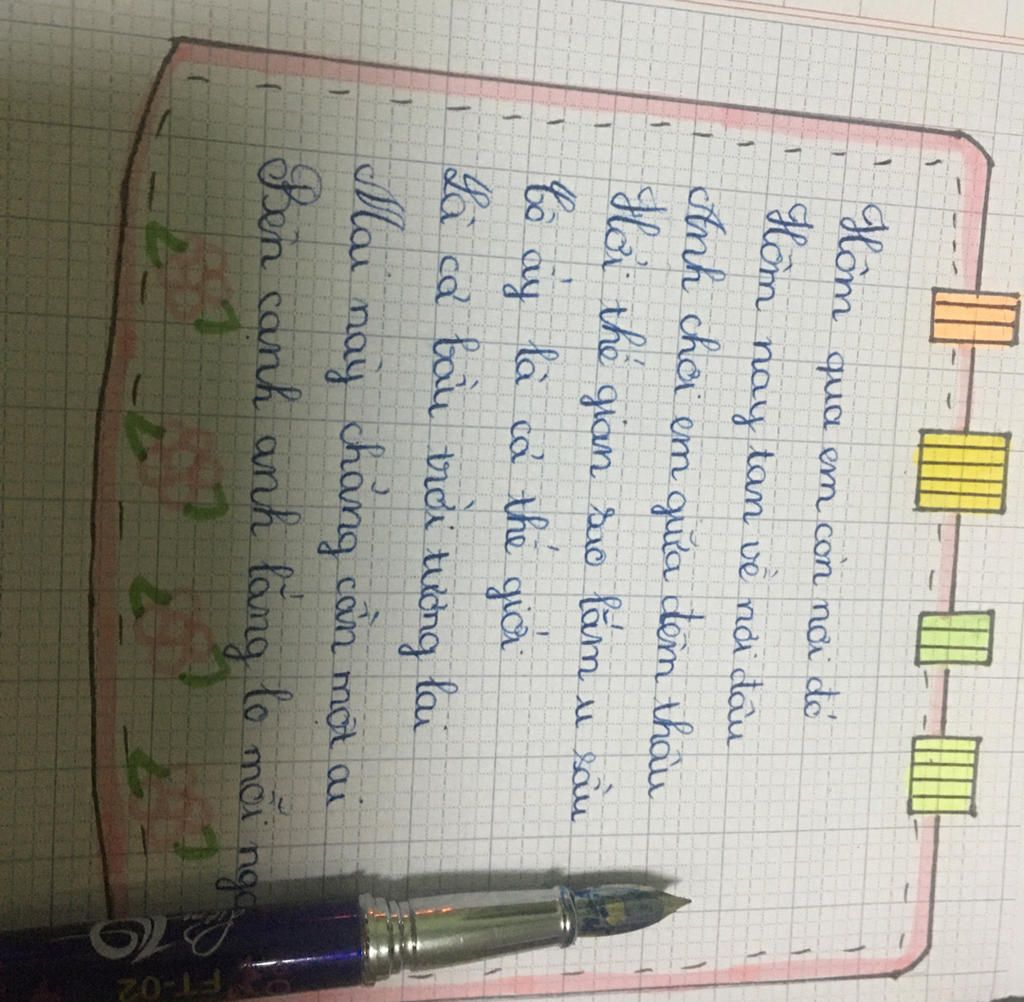 Hôm qua em còn nơi đó
Hôm nay tan về nơi đâu
Anh chơi em giữa đêm thâu
Hỏi thế gian sao lắm u sầu
Cô ấy là cả thế giới
Là cả bầu trời tương lai
Mai này chẳng cần một ai
Bên cạnh anh lắng lo mỗi
điểm 10
FT-02